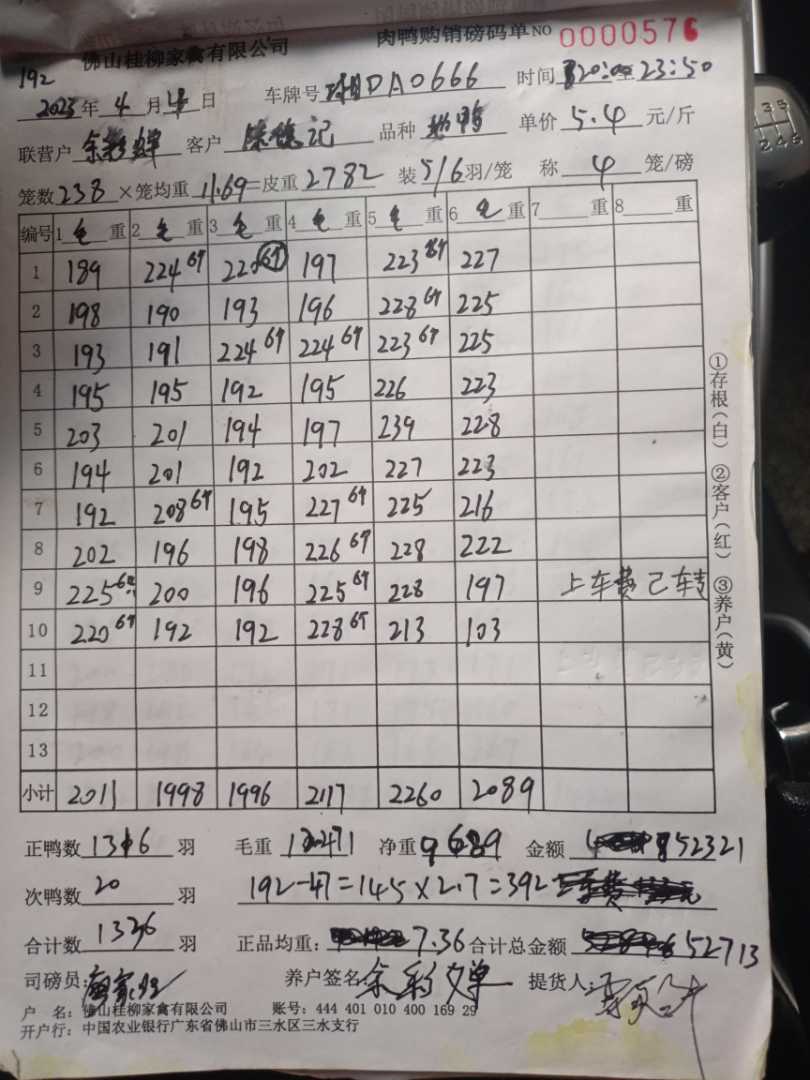 佛山桂柳家禽有限公司 肉鸭购销磅码单 NO 0000576
192
2023年4月4日 车牌号 DA0666 时间 20:00至23:50
联营户 余彩婵 客户 陈 记 品种 鸭 单价 5.4 元/斤
笼数 238 ×笼均重 11.69 =皮重 2782 装 5/6 羽/笼 称 4 笼/磅
编号 1 毛 重 2 毛 重 3 毛 重 4 毛 重 5 毛 重 6 毛 重 7 重 8 重
1 189 224 6个 220 6个 197 223 6个 227
2 198 190 193 196 228 6个 225
3 193 191 224 6个 224 6个 223 6个 225
4 195 195 192 195 226 223
5 203 201 194 197 239 228
6 194 201 192 202 227 223
7 192 208 6个 195 227 6个 225 216
8 202 196 198 226 6个 228 222
9 225 6个 200 196 225 6个 228 197 上车费已
10 220 6个 192 192 228 6个 213 103
11
12
13
小计 2011 1998 1996 2117 2260 2089
①存根(白) ②客户(红) ③养户(黄)
正鸭数 1316 羽 毛重 12471 净重 9689 金额 52321
次鸭数 20 羽 192-47=145×2.7=392
合计数 1336 羽 正品均重: 7.36 合计总金额 52713
司磅员: 养户签名 余彩婵 提货人:
户 名: 佛山桂柳家禽有限公司 账号: 444 401 010 400 169 29
开户行: 中国农业银行广东省佛山市三水区三水支行